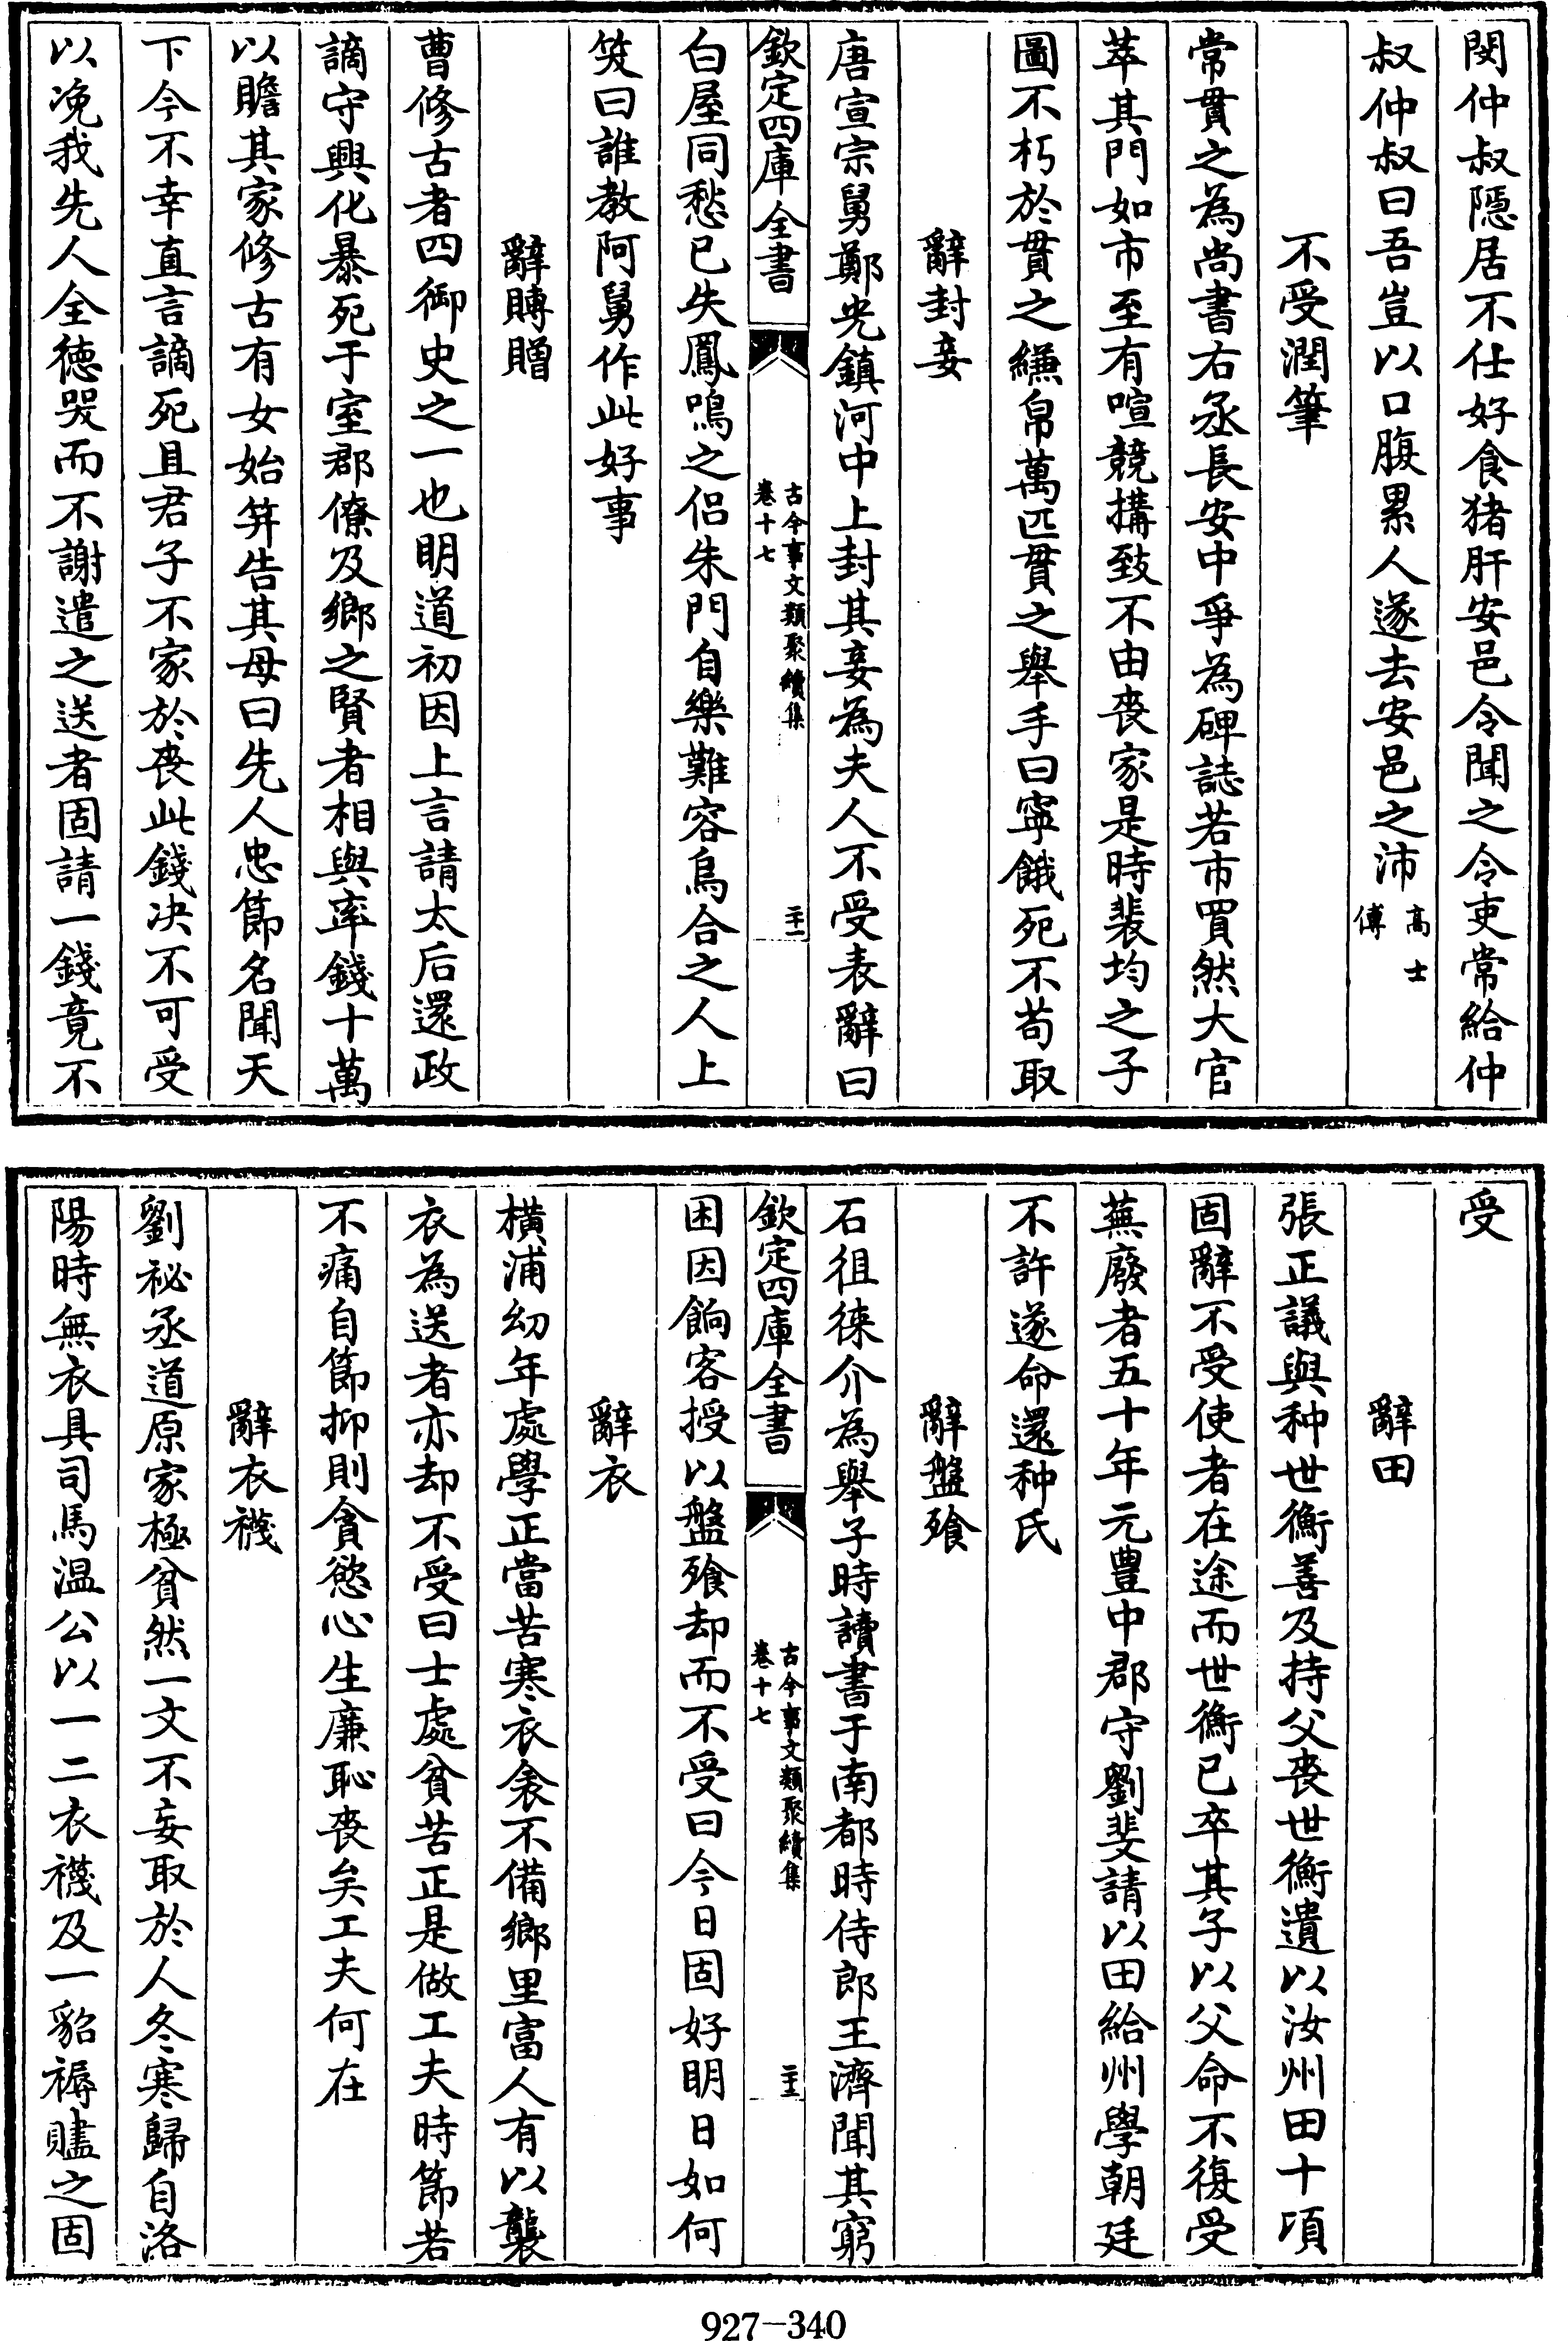 閔仲叔隱居不仕好食猪肝安邑令聞之令吏常給仲
叔仲叔曰吾豈以口腹累人遂去安邑之沛高士傳
不受潤筆
常貫之為尚書右丞長安中爭為碑誌若市買然大官
萃其門如市至有喧競搆致不由喪家是時裴均之子
圖不朽於貫之縑帛萬匹貫之舉手曰寧餓死不苟取
辭封妾
唐宣宗舅鄭光鎮河中上封其妾為夫人不受表辭曰
欽定四庫全書 古今事文類聚續集 卷十七 二十一
白屋同愁已失鳳鳴之侶朱門自樂難容烏合之人上
笑曰誰教阿舅作此好事
辭賻贈
曹修古者四御史之一也明道初因上言請太后還政
謫守興化暴死于室郡僚及鄉之賢者相與率錢十萬
以贍其家修古有女始笄告其母曰先人忠節名聞天
下今不幸直言謫死且君子不家於喪此錢决不可受
以浼我先人全徳哭而不謝遣之送者固請一錢竟不
受
辭田
張正議與种世衡善及持父喪世衡遺以汝州田十頃
固辭不受使者在途而世衡已卒其子以父命不復受
蕪廢者五十年元豊中郡守劉斐請以田給州學朝廷
不許遂命還种氏
辭盤飱
石徂徠介為舉子時讀書于南都時侍郎王濟聞其窮
欽定四庫全書 古今事文類聚續集 卷十七 二十二
困因餉客授以盤飱却而不受曰今日固好明日如何
辭衣
橫浦幼年處學正當苦寒衣衾不備鄉里富人有以襲
衣為送者亦却不受曰士處貧苦正是做工夫時節若
不痛自節抑則貪慾心生廉恥喪矣工夫何在
辭衣襪
劉祕丞道原家極貧然一文不妄取於人冬寒歸自洛
陽時無衣具司馬温公以一二衣襪及一貂褥贐之固
927-340